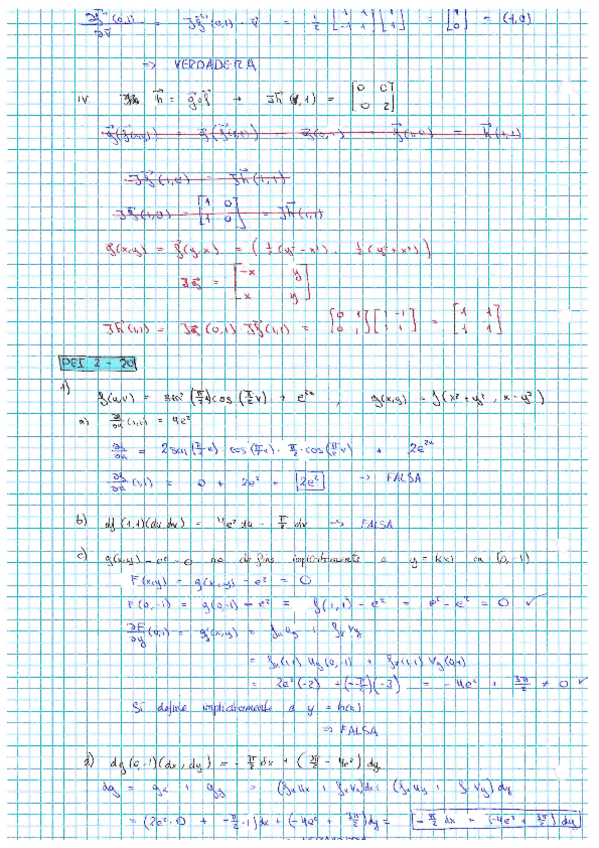 ∂f⃗/∂v⃗ (0,1) = Jf⃗ (0,1) · v⃗ = 1/2 [1 1; -1 1] [1; 1] = [1; 0] = (1,0)
-> VERDADERA
iv h⃗ = g⃗∘f⃗ → Jh⃗ (1,1) = [0 0; 0 2]
Jf⃗(1,0) = Jh⃗(1,1)
Jf⃗(1,0) = [1 0; 1 0] = Jh⃗(1,1)
g(x,y) = f⃗(y,x) = ( 1/2 (y² - x²), 1/2 (y² + x²) )
Jg⃗ = [-x y; x y]
Jh⃗(1,1) = Jg⃗ (0,1) Jf⃗(1,1) = [0 1; 0 1] [1 -1; 1 1] = [1 1; 1 1]
PEI 2 - 20
1) f(u,v) = sen² (π/2 u) cos (π/2 v) + e²ᵘ , g(x,y) = f(x² + y², x - y³)
a) ∂f/∂u (1,1) = 4e²
∂f/∂u = 2 sen (π/2 u) · cos (π/2 u) · π/2 · cos (π/2 v) + 2e²ᵘ
∂f/∂u (1,1) = 0 + 2e² = 2e² -> FALSA
b) df (1,1)(du,dv) = 4e² du - π/2 dv -> FALSA
c) g(x,y) - e² = 0 no define implícitamente a y = h(x) en (0,-1)
F(x,y) = g(x,y) - e² = 0
F(0,-1) = g(0,-1) - e² = f(1,1) - e² = e² - e² = 0 ✓
∂F/∂y (0,-1) = g(x,y) = fu uy + fv vy
= fu(1,1) uy(0,-1) + fv(1,1) vy(0,-1)
= 2e² (-2) + (-π/2)(-3) = -4e² + 3π/2 ≠ 0 ✓
Sí define implícitamente a y = h(x)
=> FALSA
d) dg(0,-1)(dx,dy) = - π/2 dx + ( 3π/2 - 4e² ) dy
dg = gx + gy = (fu ux + fv vx)dx + (fu uy + fv vy) dy
= (2e²·0 + -π/2 ·1)dx + (-4e² + 3π/2)dy = - π/2 dx + (-4e² + 3π/2) dy